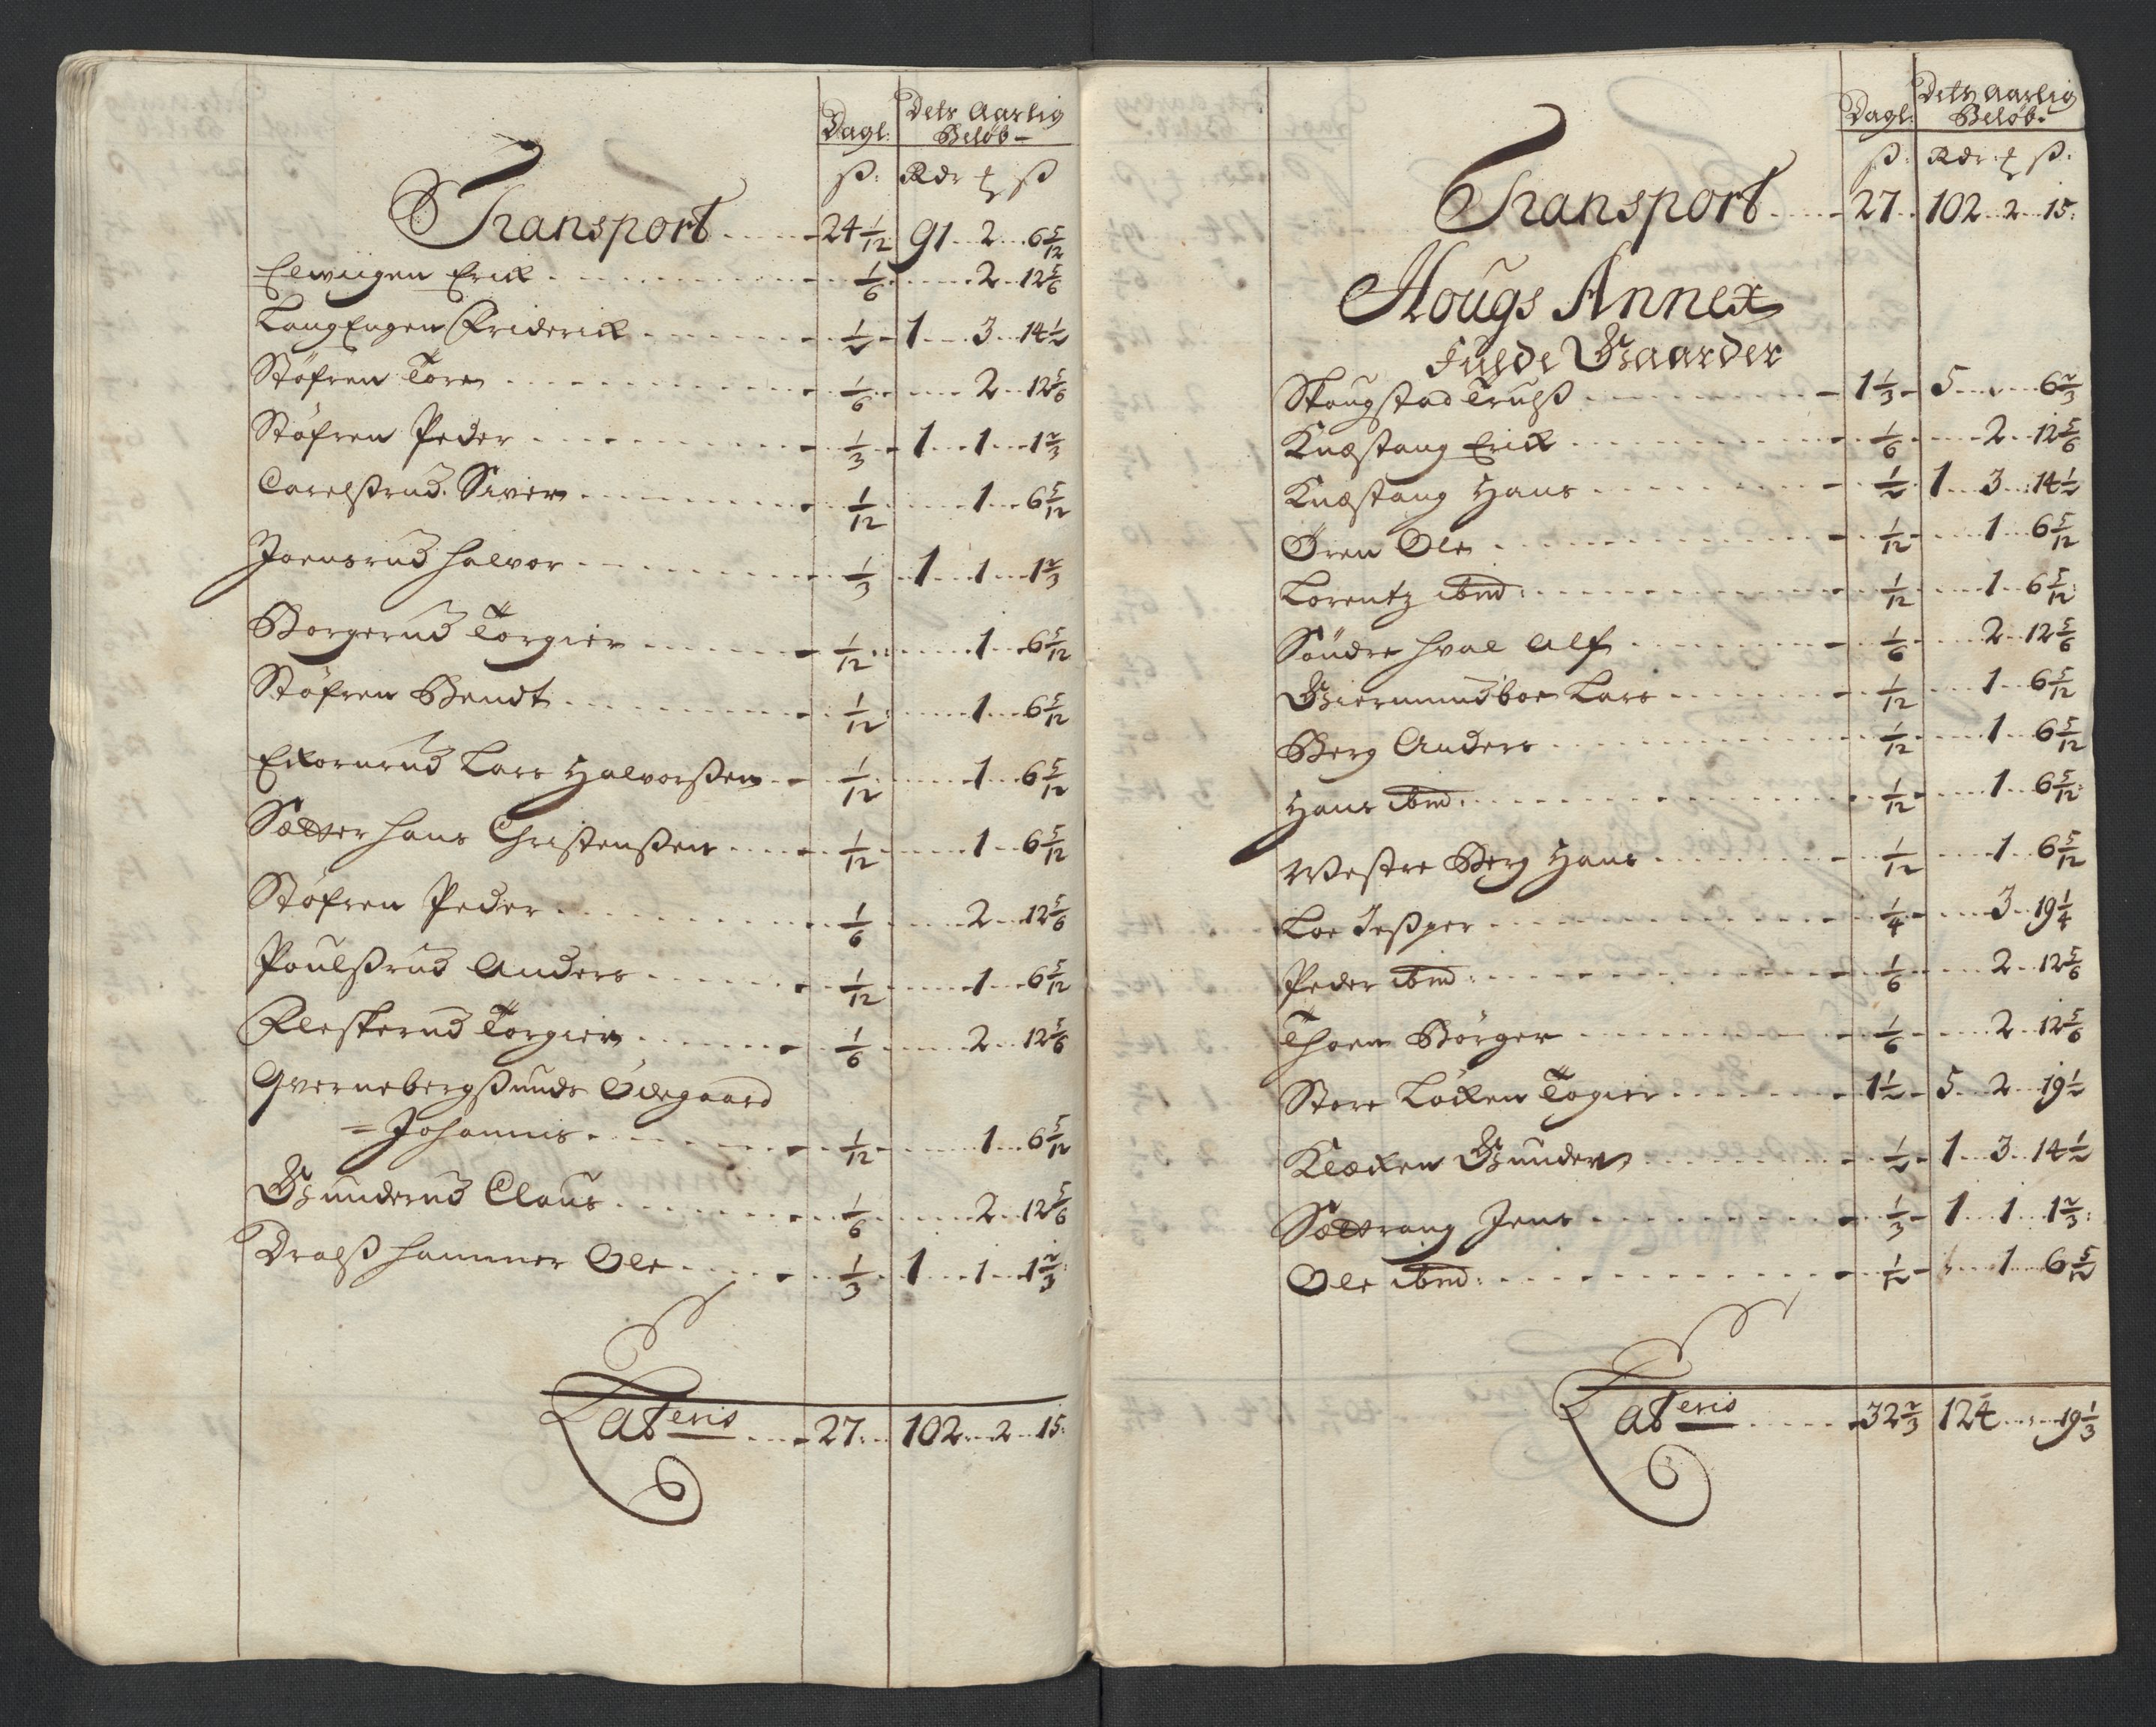 Dagl: Dets Aarlig
Beløb
ß: Rdr ₰ ß
Transport 24 1/12 91 2 6 5/12
Elwiigen Erick 1/6 2 12 5/6
LangEngen Friderick 1/2 1 3 14 1/2
Støfren Tore 1/6 2 12 5/6
Støfren Peder 1/3 1 1 1 2/3
Carelsrud Siver 1/12 1 6 5/12
Joensrud Halvor 1/3 1 1 1 2/3
Borgerud Torgier 1/12 1 6 5/12
Støfren Bendt 1/12 1 6 5/12
Ekornrud Lars Halvorßen 1/12 1 6 5/12
Sætter Hans Christenßen 1/12 1 6 5/12
Støfren Peder 1/6 2 12 5/6
Poulßrud Anders 1/12 1 6 5/12
Fleskerud Torgier 1/6 2 12 5/6
Qvernebergßunds Ødegaard
= Johannis 1/12 1 6 5/12
Gunderud Claus 1/6 2 12 5/6
Dralß hammer Ole 1/3 1 1 1 2/3
Lateris 27 102 2 15
Dagl: Dets Aarlig
Beløb
ß: Rdr ₰ ß:
Transport 27 102 2 15
Hougs Annex
Fulde Gaarder
Skougstad Trulß 1 1/3 5 6 2/3
Knæstang Erick 1/6 2 12 5/6
Knæstang Hans 1/2 1 3 14 1/2
Øren Ole 1/12 1 6 5/12
Lorentz ibmd: 1/12 1 6 5/12
Søndre Hval Alf 1/6 2 12 5/6
Giermundboe Lars 1/12 1 6 5/12
Berg Anders 1/12 1 6 5/12
Hans ibmd: 1/12 1 6 5/12
Westre Berg Hans 1/12 1 6 5/12
Loe Jeßper 1/4 3 19 1/4
Peder ibmd: 1/6 2 12 5/6
Thoen Børger 1/6 2 12 5/6
Store Løcken Togier 1 1/2 5 2 19 1/2
Klæcken Gunder 1/2 1 3 14 1/2
Sættrang Jens 1/3 1 1 1 2/3
Ole ibmd: 1/12 1 6 5/12
Lateris 32 2/3 124 19 1/3